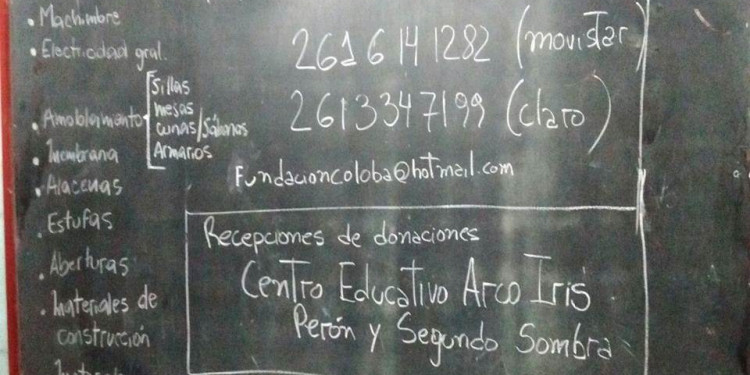 • Machimbre
• Electricidad gral.
• Amoblamiento
Sillas
mesas
cunas/Sábanas
Armarios
• Membrana
• Alacenas
• Estufas
• Aberturas
• Materiales de
construcción
2616141282 (movistar)
2613347199 (claro)
Fundacioncoloba@hotmail.com
Recepciones de donaciones
Centro Educativo Arco Iris
Perón y Segundo Sombra